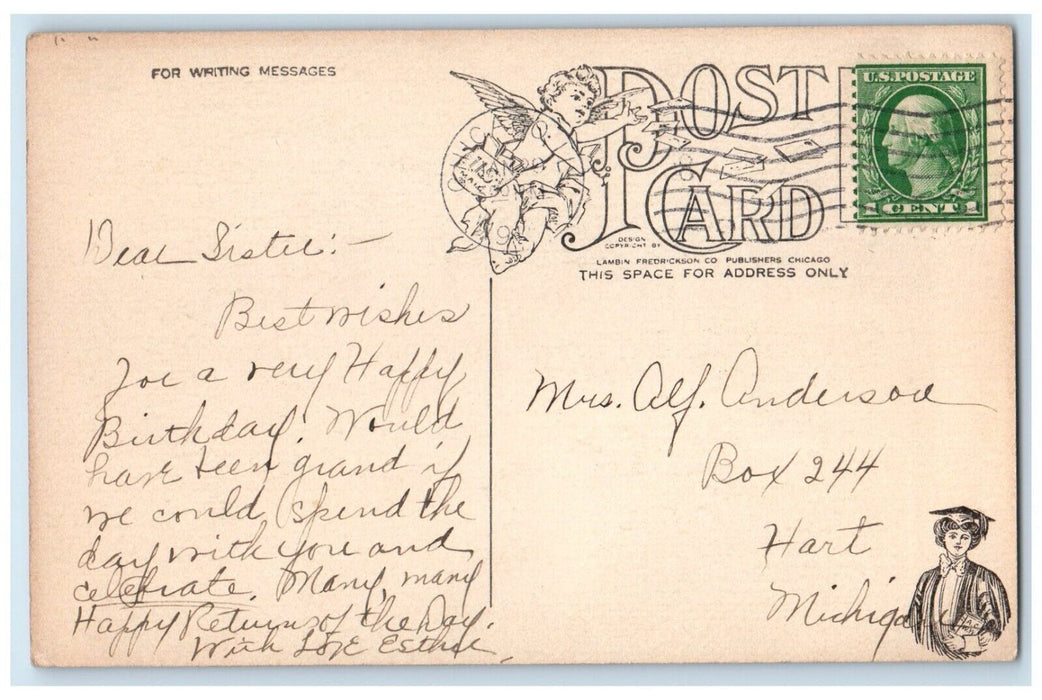 FOR WRITING MESSAGES
POST
CARD
U.S. POSTAGE
1 CENT 1
DESIGN
COPYRIGHT BY
LAMBIN FREDRICKSON CO PUBLISHERS CHICAGO
THIS SPACE FOR ADDRESS ONLY
Dear Sister:-
Best wishes
for a very Happy
Birthday! Would
have been grand if
we could spend the
day with you and
celebrate. Many, many
Happy Returns of the Day.
With Love Esther
Mrs. Alf. Anderson
Box 244
Hart
Michigan